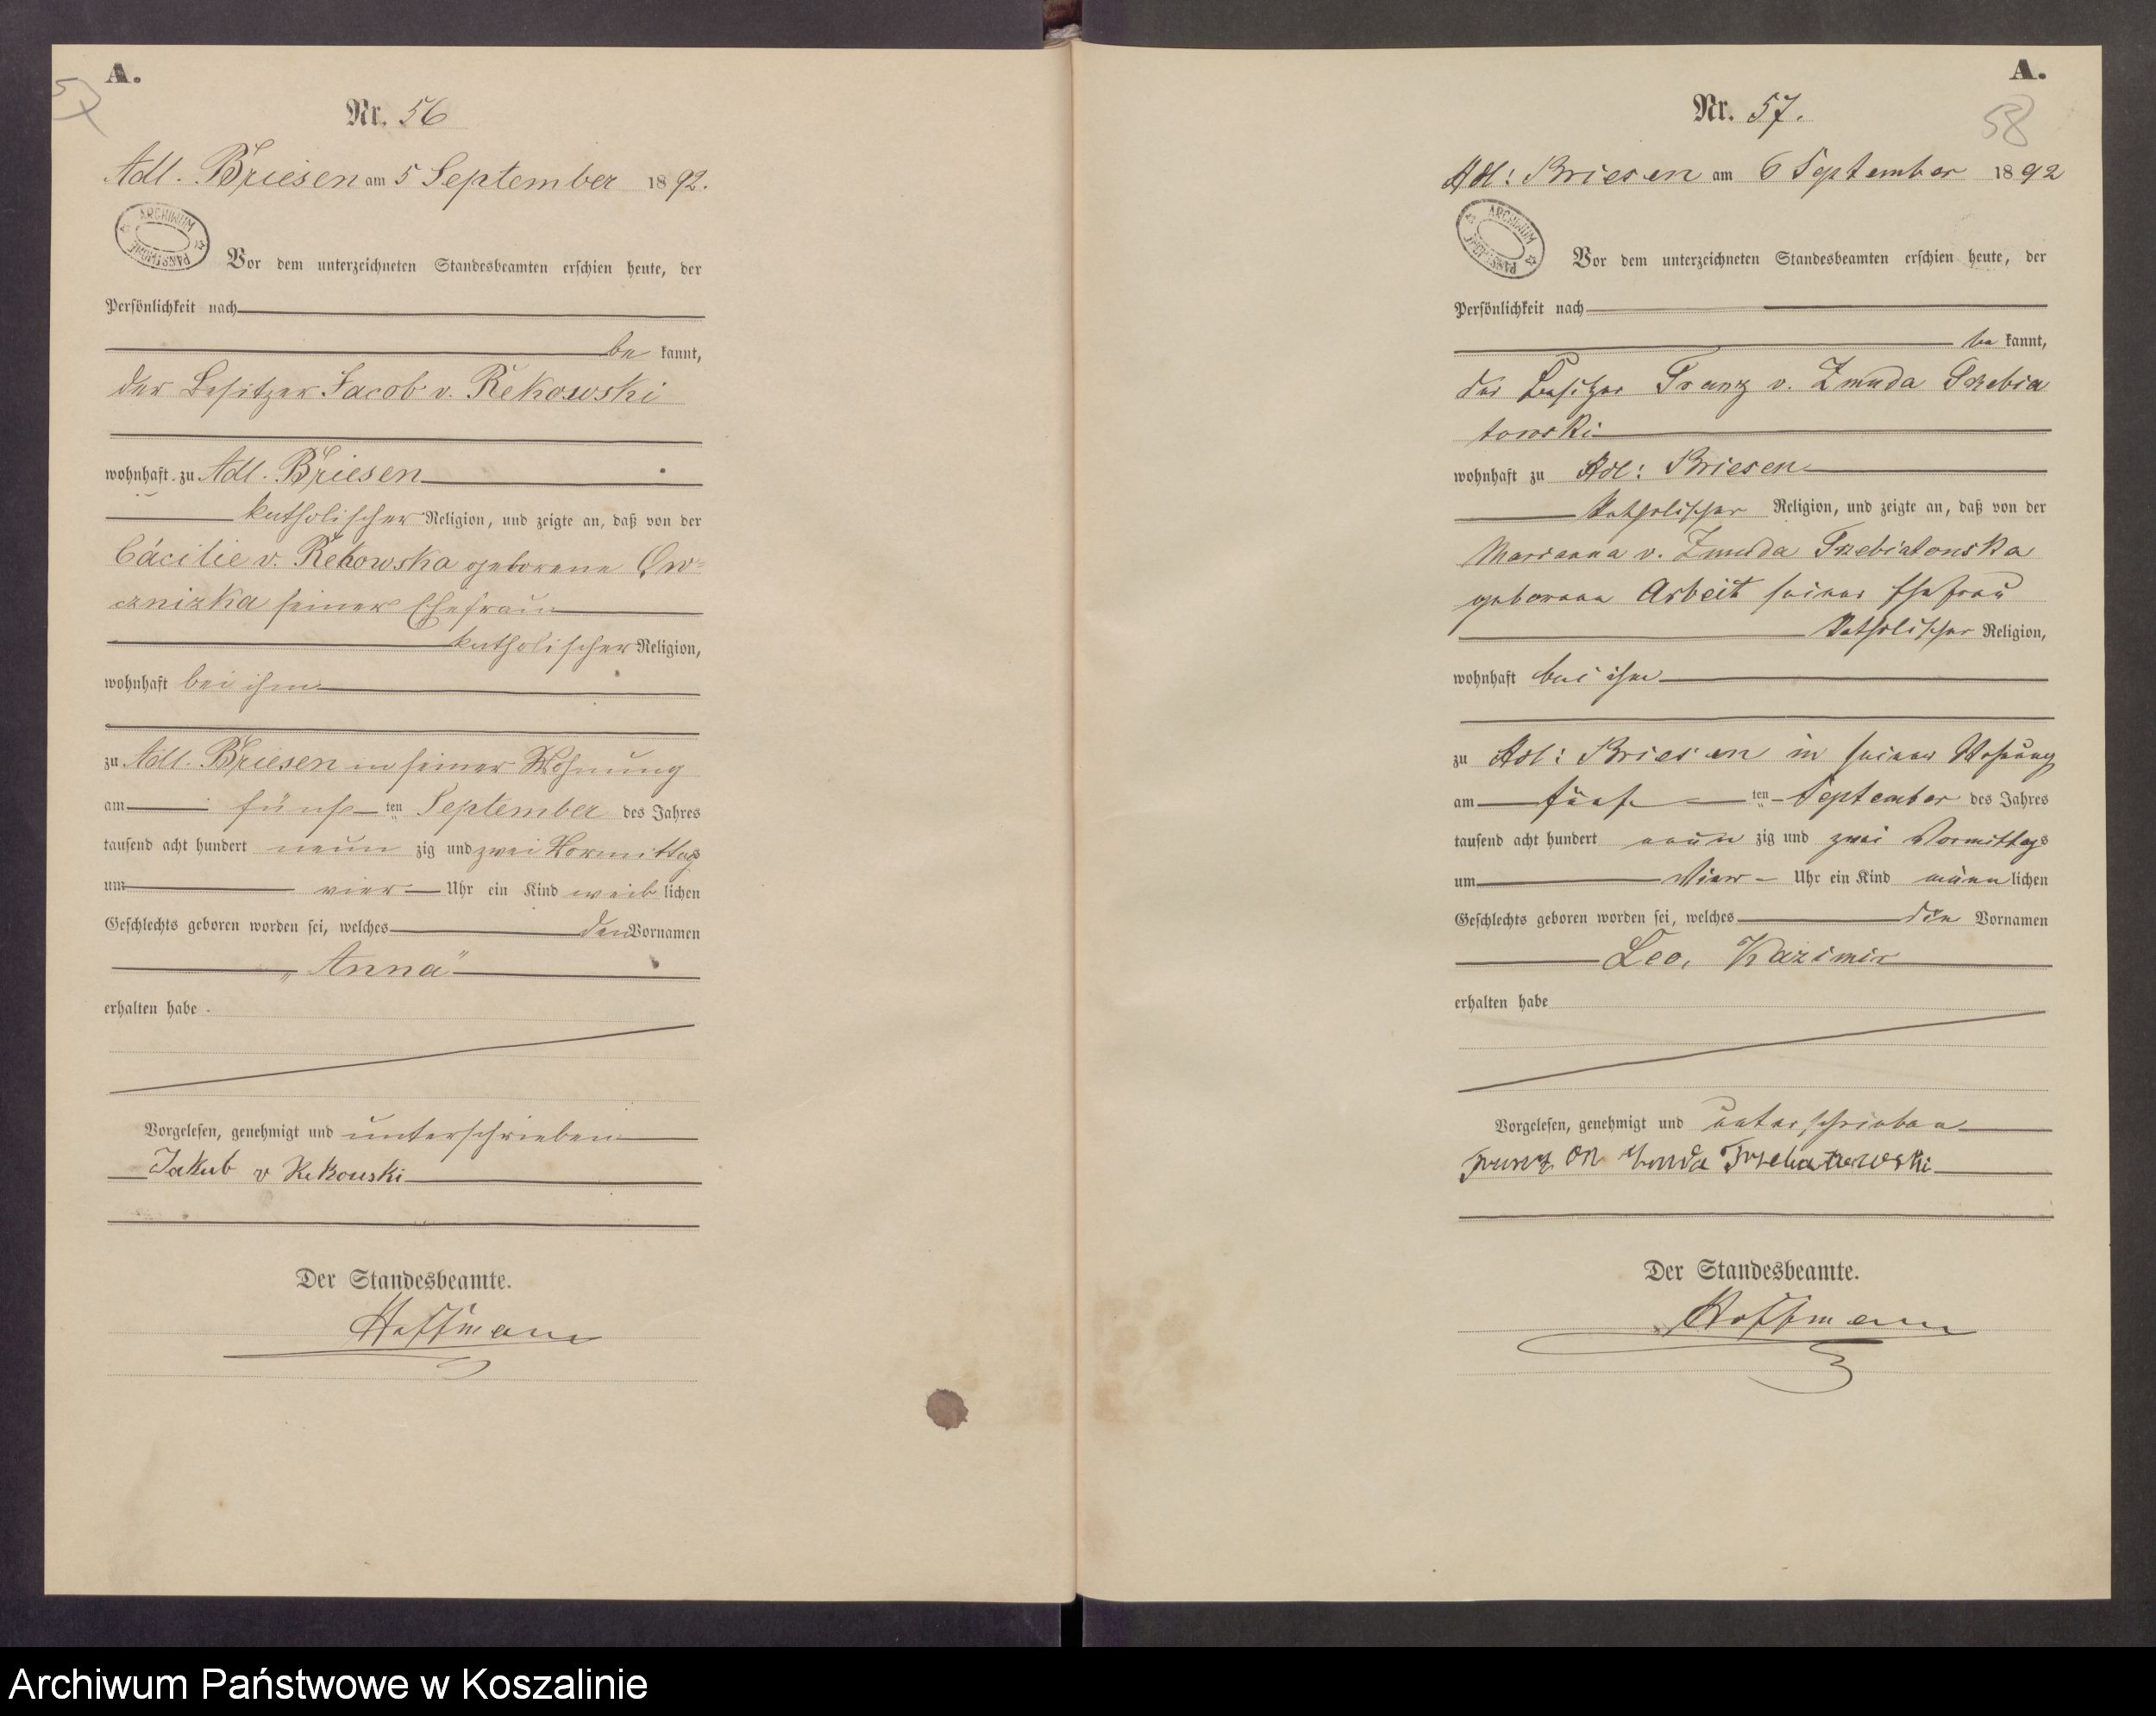 57
A.
Nr. 56
Adl. Briesen am 5 September 1892.
ARCHIWUM PAŃSTWOWE
Vor dem unterzeichneten Standesbeamten erschien heute, der
Persönlichkeit nach
be kannt,
der Besitzer Jacob v. Rekowski
wohnhaft zu Adl. Briesen
katholischer Religion, und zeigte an, daß von der
Cäcilie v. Rekowska geborene
seiner Ehefrau
katholischer Religion,
wohnhaft bei ihm
zu Adl. Briesen in seiner Wohnung
am fünf ten September des Jahres
tausend acht hundert neun zig und zwei Vormittags
um vier Uhr ein Kind weib lichen
Geschlechts geboren worden sei, welches den Vornamen
„Anna"
erhalten habe
Vorgelesen, genehmigt und unterschrieben
Jakub v Rekowski
Der Standesbeamte.
Hoffmann
A.
58
Nr. 57.
Adl: Briesen am 6 September 1892
ARCHIWUM PAŃSTWOWE
Vor dem unterzeichneten Standesbeamten erschien heute, der
Persönlichkeit nach
be kannt,
der Besitzer Franz v. Zmuda Trzebia
towski
wohnhaft zu Adl: Briesen
katholischer Religion, und zeigte an, daß von der
Marianna v. Zmuda Trzebiatowska
geborene Arbeit seiner Ehefrau
katholischer Religion,
wohnhaft bei ihm
zu Adl: Briesen in seiner Wohnung
am fünf ten September des Jahres
tausend acht hundert neun zig und zwei Vormittags
um Vier Uhr ein Kind männ lichen
Geschlechts geboren worden sei, welches die Vornamen
Leo, Kazimir
erhalten habe
Vorgelesen, genehmigt und unterschrieben
Franz Zmuda Trzebiatowski
Der Standesbeamte.
Hoffmann
Archiwum Państwowe w Koszalinie